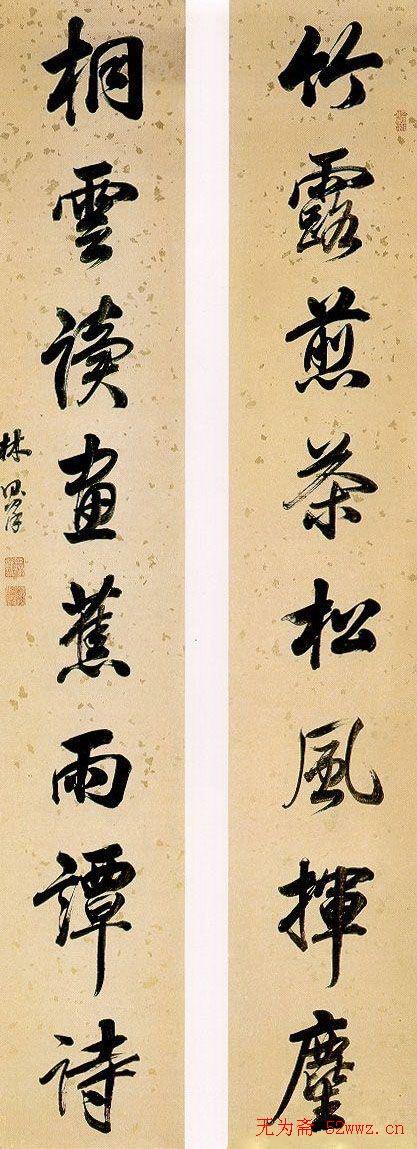 竹露煎茶松風揮麈
桐雲讀畫蕉雨譚詩
林
无为斋·52wwz.cn